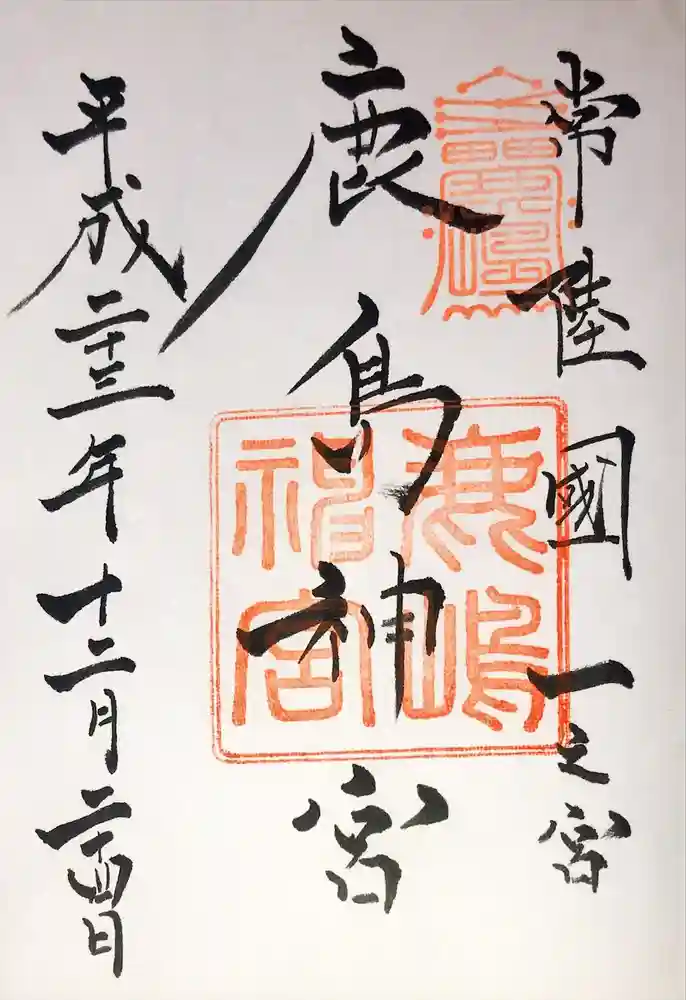 常陸國一之宮
鹿島神宮
平成二十三年十二月二十四日
鹿嶋
神宮